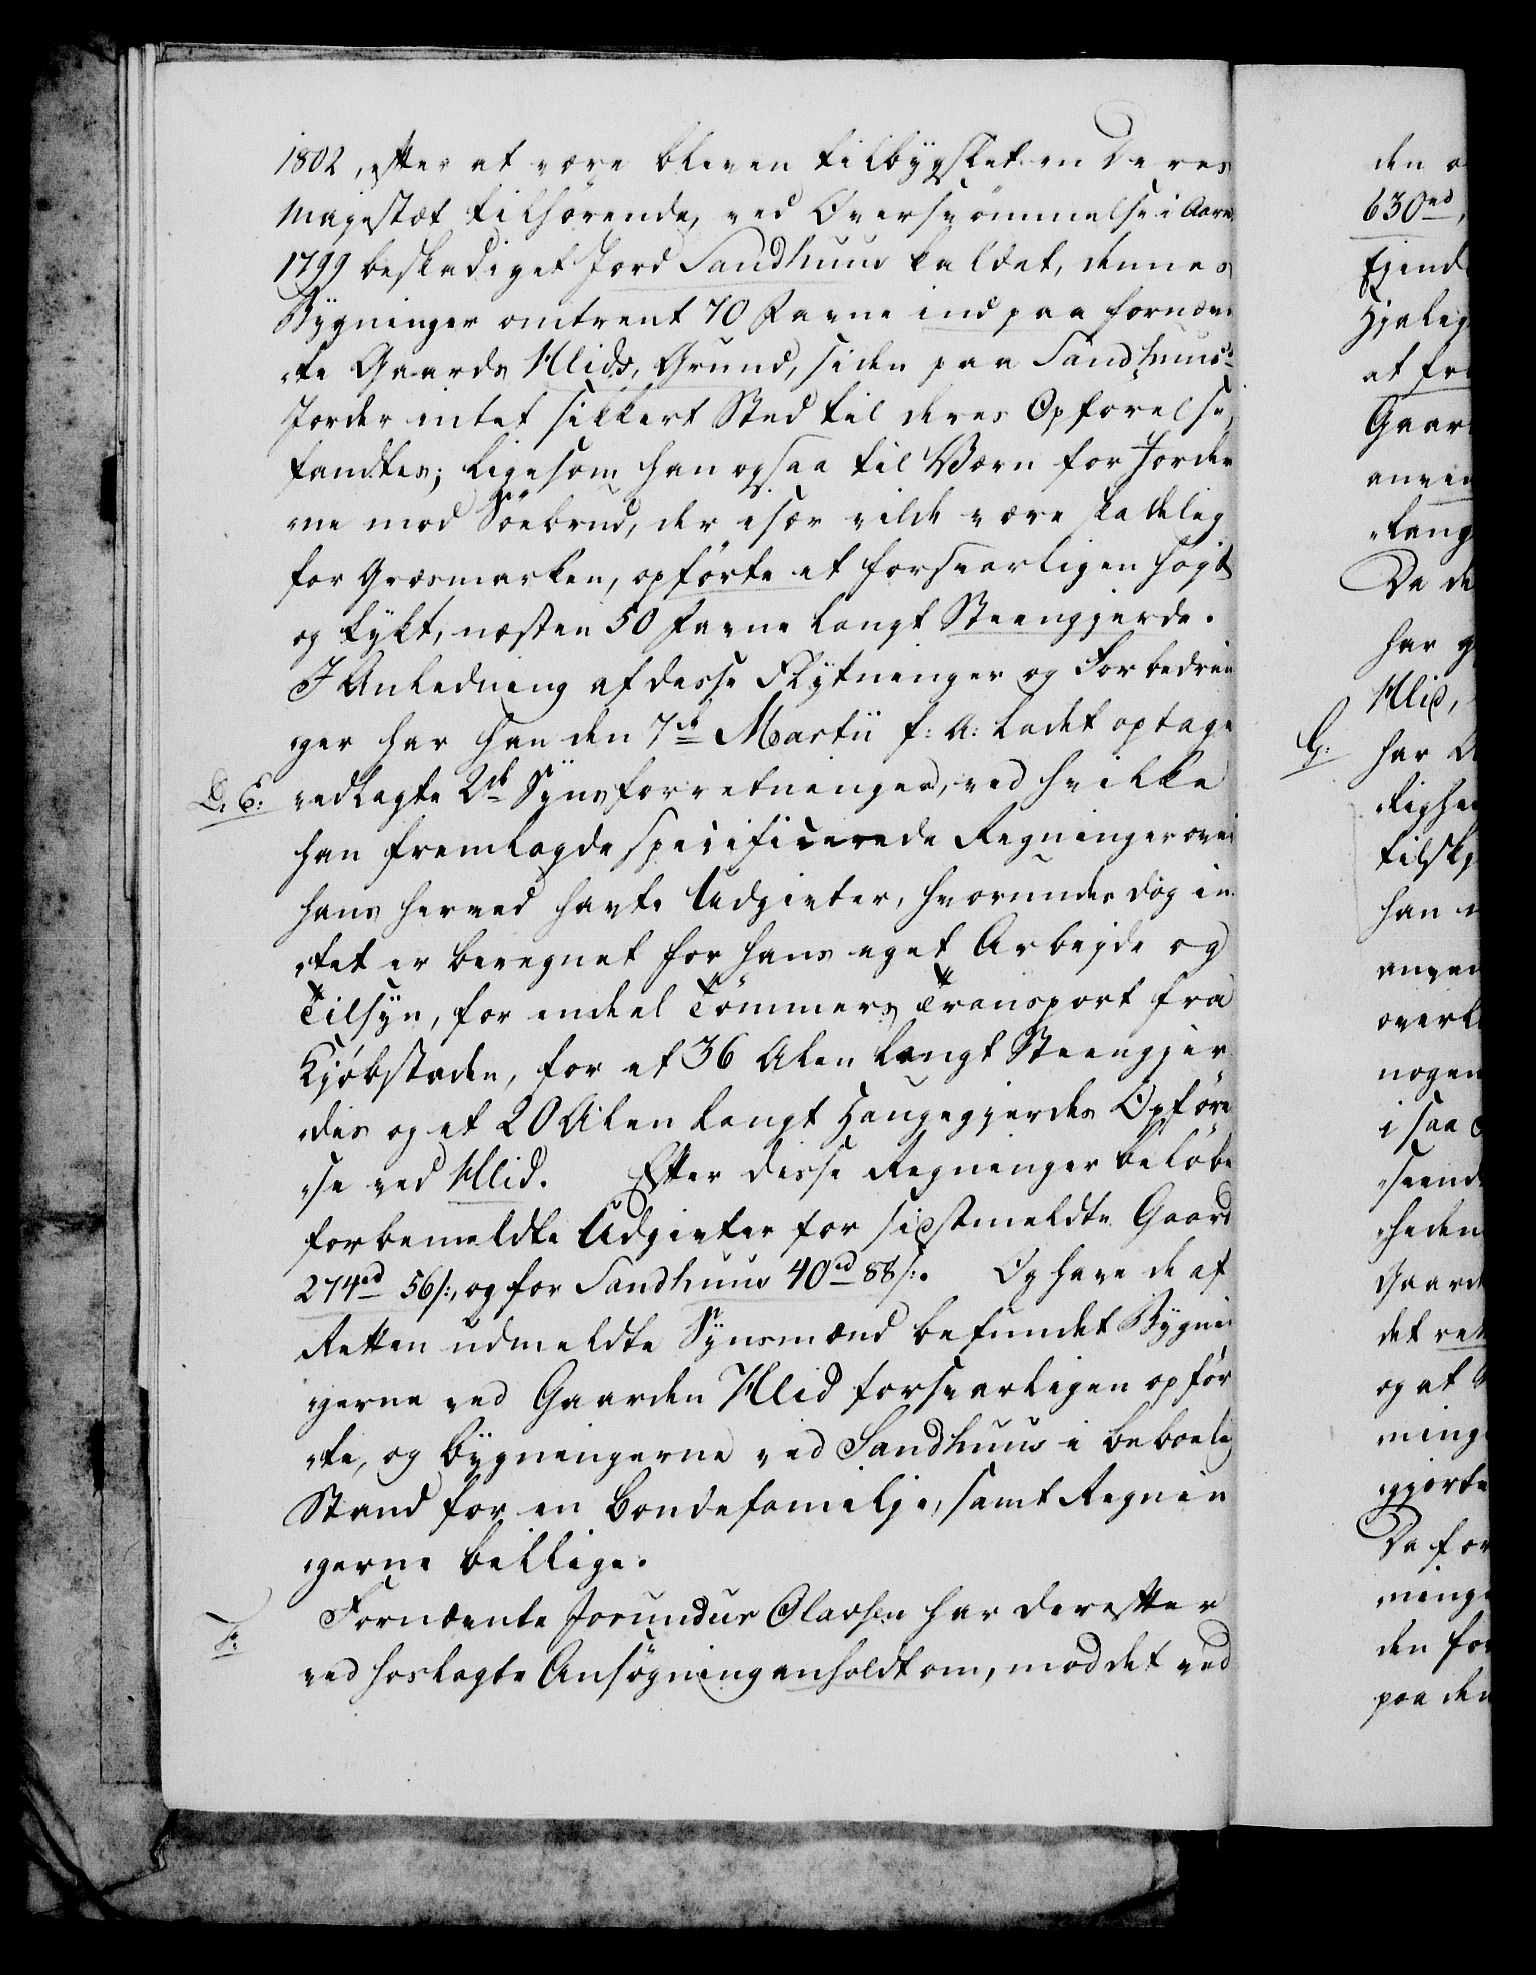 1802, efter at være bleven tilbygslet en Deres
Majestæt tilhørende, ved Oversvømmelse i Aaret
1799 beskadiget Jord Sandhuus kaldet, dennes
Bygninger omtrent 70 Favne ind paa fornævn
„te Gaards Hlids, Grund, siden paa Sandhuus's
Jorder intet sikkert Sted til deres Opförelse
fandtes; ligesom han ogsaa til Værn for Jorder
„ne mod Söebrud, der især vilde være skadelig
for Græsmarken, opförte et forsvarligen höit
og tykt, næsten 50 Favne langt Steengjerde.
I Anledning af disse Flytninger og Forbedrin
„ger har han den 7de Martii f: A: ladet optage
D. E: vedlagte 2de Synsforretninger, ved hvilke
han fremlagde specificerede Regninger over
hans herved havte Udgivter, hvorunder dog in
„tet er beregnet for hans eget Arbejde og
Tilsyn, for endeel Tömmers Transport fra
Kjöbstaden, for et 36 Alen langt Steengjer
„des og et 20 Alen langt Haugegjerdes Opförel
„se ved Hlid. Efter disse Regninger belöbe
forbemeldte Udgivter for sidstmeldte Gaard
274rd 56/:, og for Sandhuus 40rd 88/:. Og have de af
Retten udmeldte Synsmænd befundet Bygnin
„gerne ved Gaarden Hlid forsvarligen opför
„te, og Bygningerne ved Sandhuus i beboelig
Stand for en Bondefamilje, samt Regnin
„gerne billige.
F: Fornævnte Jörundur Olavsen har derefter
ved hoslagte Ansögning anholdt om, mod det ved
den
630rd,
at
Gaar
Da de
har
Hlid,
G: har
han
i saa
det
og at
Da for
den for
paa den